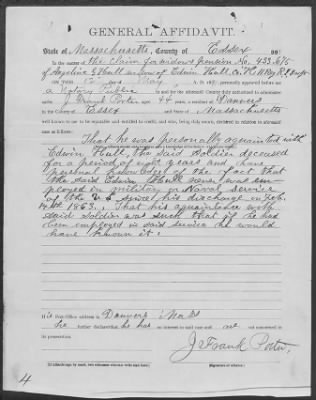 GENERAL AFFIDAVIT.
State of Massachusetts, County of Essex, ss:
In the matter of the Claim for widow's pension No. 433.615
of Angeline G Hull widow of Edwin Hull, Co. H
Personally came before me,
a Notary Public in and for aforesaid County and State
J. Frank Porter, aged 44 years, a resident of Danvers
County of Essex State of Massachusetts
well known to me to be reputable and entitled to credit, and who, being duly sworn, declared in relation to aforesaid
case as follows:
That he was personally acquainted with
Edwin Hull, the said Soldier deceased
for a period of eight years and have
personal knowledge of the fact that
the said Edwin Hull never was em-
ployed in military or Naval service
of the U S since his discharge on Feb.
14th 1863. That his aquaintance with
said Soldier was such that if he had
been employed in said service he would
have known it.
His Post-Office address is Danvers Mass
he further declares that he has no interest in said case and not concerned in
its prosecution.
J. Frank Porter.
(Signature of affiant.)
4